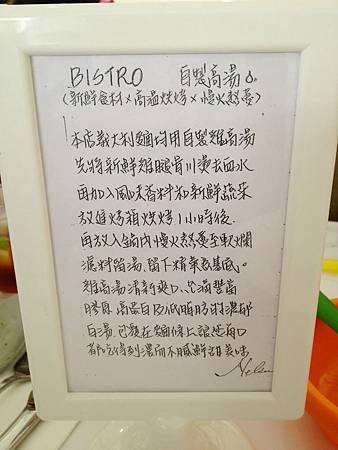 BISTRO 自製高湯
(新鮮食材×高溫烘烤×慢火熬臺)
本店義大利麵均用自製雞高湯
先將新鮮雞腿骨川燙去血水
再加入風味香料和新鮮蔬菜
放進烤箱烘烤1小時後
再放入鍋內慢火熬臺至軟爛
濾料留湯,留下精華為基底。
雞高湯清新爽口、飽滿豐富
膠原、高蛋白及低脂肪的濃郁
白湯,包覆在麵條上讓每口
都吃得到濃而不膩鮮甜美味
Helen